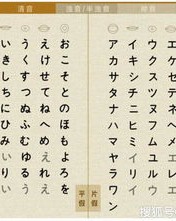 清音
浊音/半浊音
拗音
いきしちにひみいりい
うくすつぬふむゆるう
えけせてねへめえれえ
おこそとのほもよろを
平假
片假
アカサタナハマヤラワン
イキシチニヒミイリイ
ウクスツヌフムユルウ
エケセテネヘメエレエ